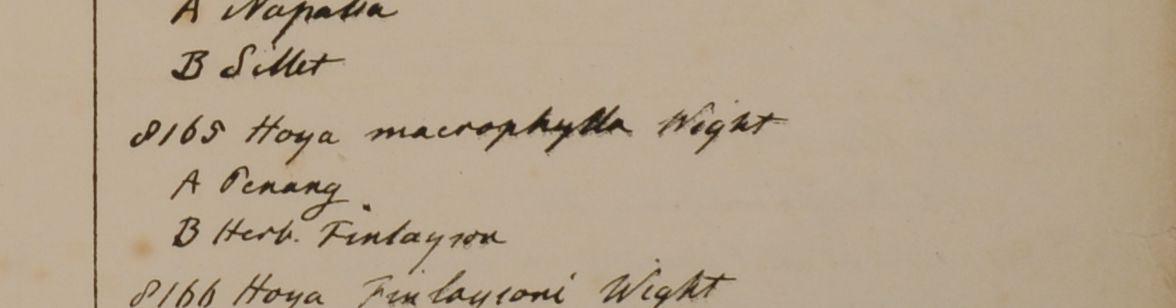 A Napalia
B Sillet
8165 Hoya macrophylla Wight
A Penang
B Herb. Finlayson
8166 Hoya Finlaysoni Wight